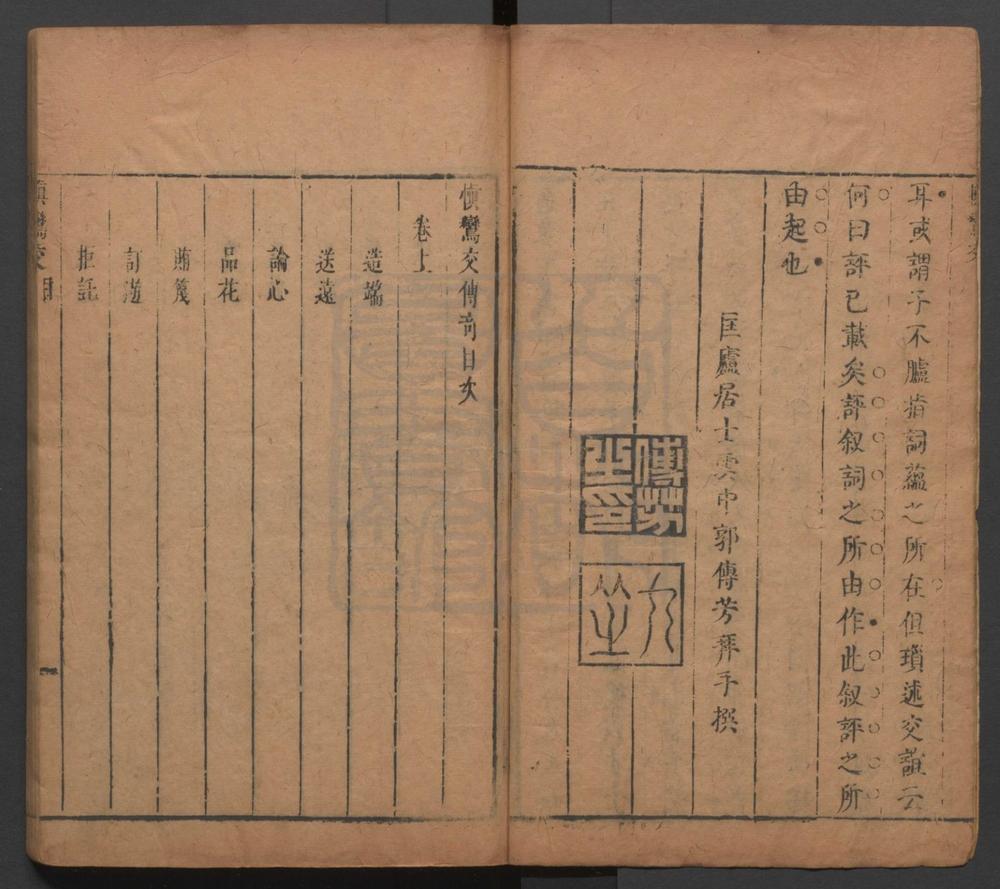 耳或謂予不臚指詞蘊之所在但瑣述交誼云
何曰評已載矣評叙詞之所由作此叙評之所
由起也
匡廬居士雲中郭傳芳拜手撰
傅芳
之印
九
芝
慎鸞交傳奇目次
卷上
造端
送遠
論心
品花
賄篾
訂遊
拒託
慎鸞交 目
一